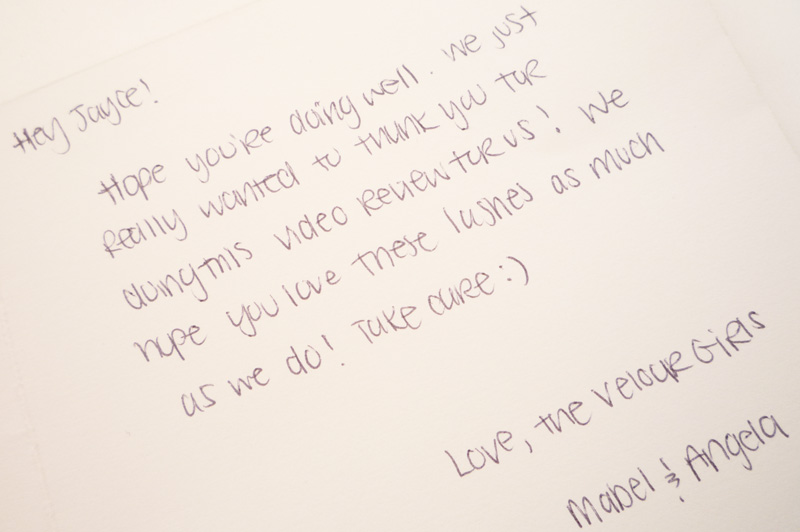 Hey Jayce!
Hope you're doing well. We just
really wanted to thank you for
doing this video review for us! We
hope you love these lashes as much
as we do! Take care :)
Love, the Velour Girls
Mabel & Angela